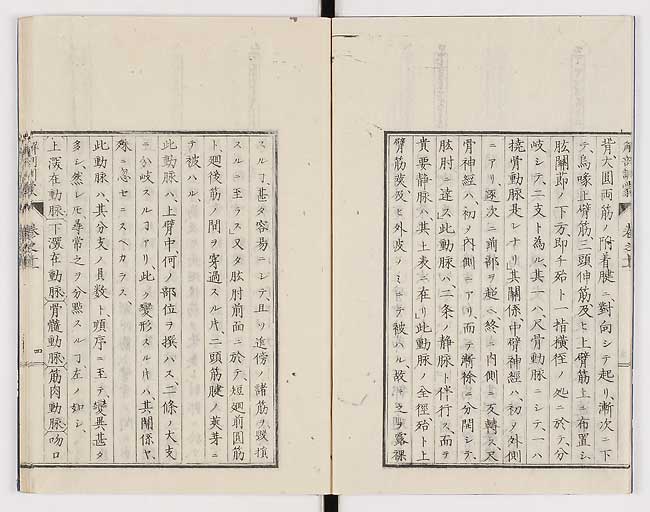 背大圓両筋ノ附着腱ニ對向シテ起リ漸次ニ下
テ烏喙上臂筋三頭伸筋及ヒ上臂筋上ニ布置シ
肱關節ノ下方即チ殆ト一指横徑ノ処ニ於テ分
岐シテ二支ト為ル其一ハ尺骨動脉ニシテ一ハ
撓骨動脉是レナリ其關係中臂神經ハ初ヲ外側
ニアリ逐次ニ前部ヲ超ヘ終ニ内側ニ反轉ス尺
骨神經ハ初ヲ内側ニアリ而テ漸徐ニ分開シテ
肱肘ニ達ス此動脉ハ二条ノ静脉ト伴行ス而テ
貴要静脉ハ其上表ニ在リ此動脉ノ全徑殆ト上
臂筋膜及ヒ外皮ノミニテ被ハル故ニ之ヲ露裸
スルヿ甚タ容易ニシテ且リ近傍ノ諸筋ヲ毀損
スルニ至ラス又タ肱肘前面ニ於テ短廻前圓筋
ト廻後筋ノ間ヲ穿過スル片二頭筋腱ノ莢茅ニ
テ被ハル
此動脉ハ上臂中何ノ部位ヲ撰ハス二條ノ大支
ニ分岐スルヿアリ此ク變形スル片ハ其關係ヤ
殊ニ忽セニスヘカラス
此動脉ハ其分支ノ員数ト順序ニ至テ變異甚タ
多シ然レモ尋常之ヲ分點スルヿ左ノ如シ
上深在動脉下深在動脉骨髓動脉筋肉動脉吻口
解剖訓蒙
巻之十一
四